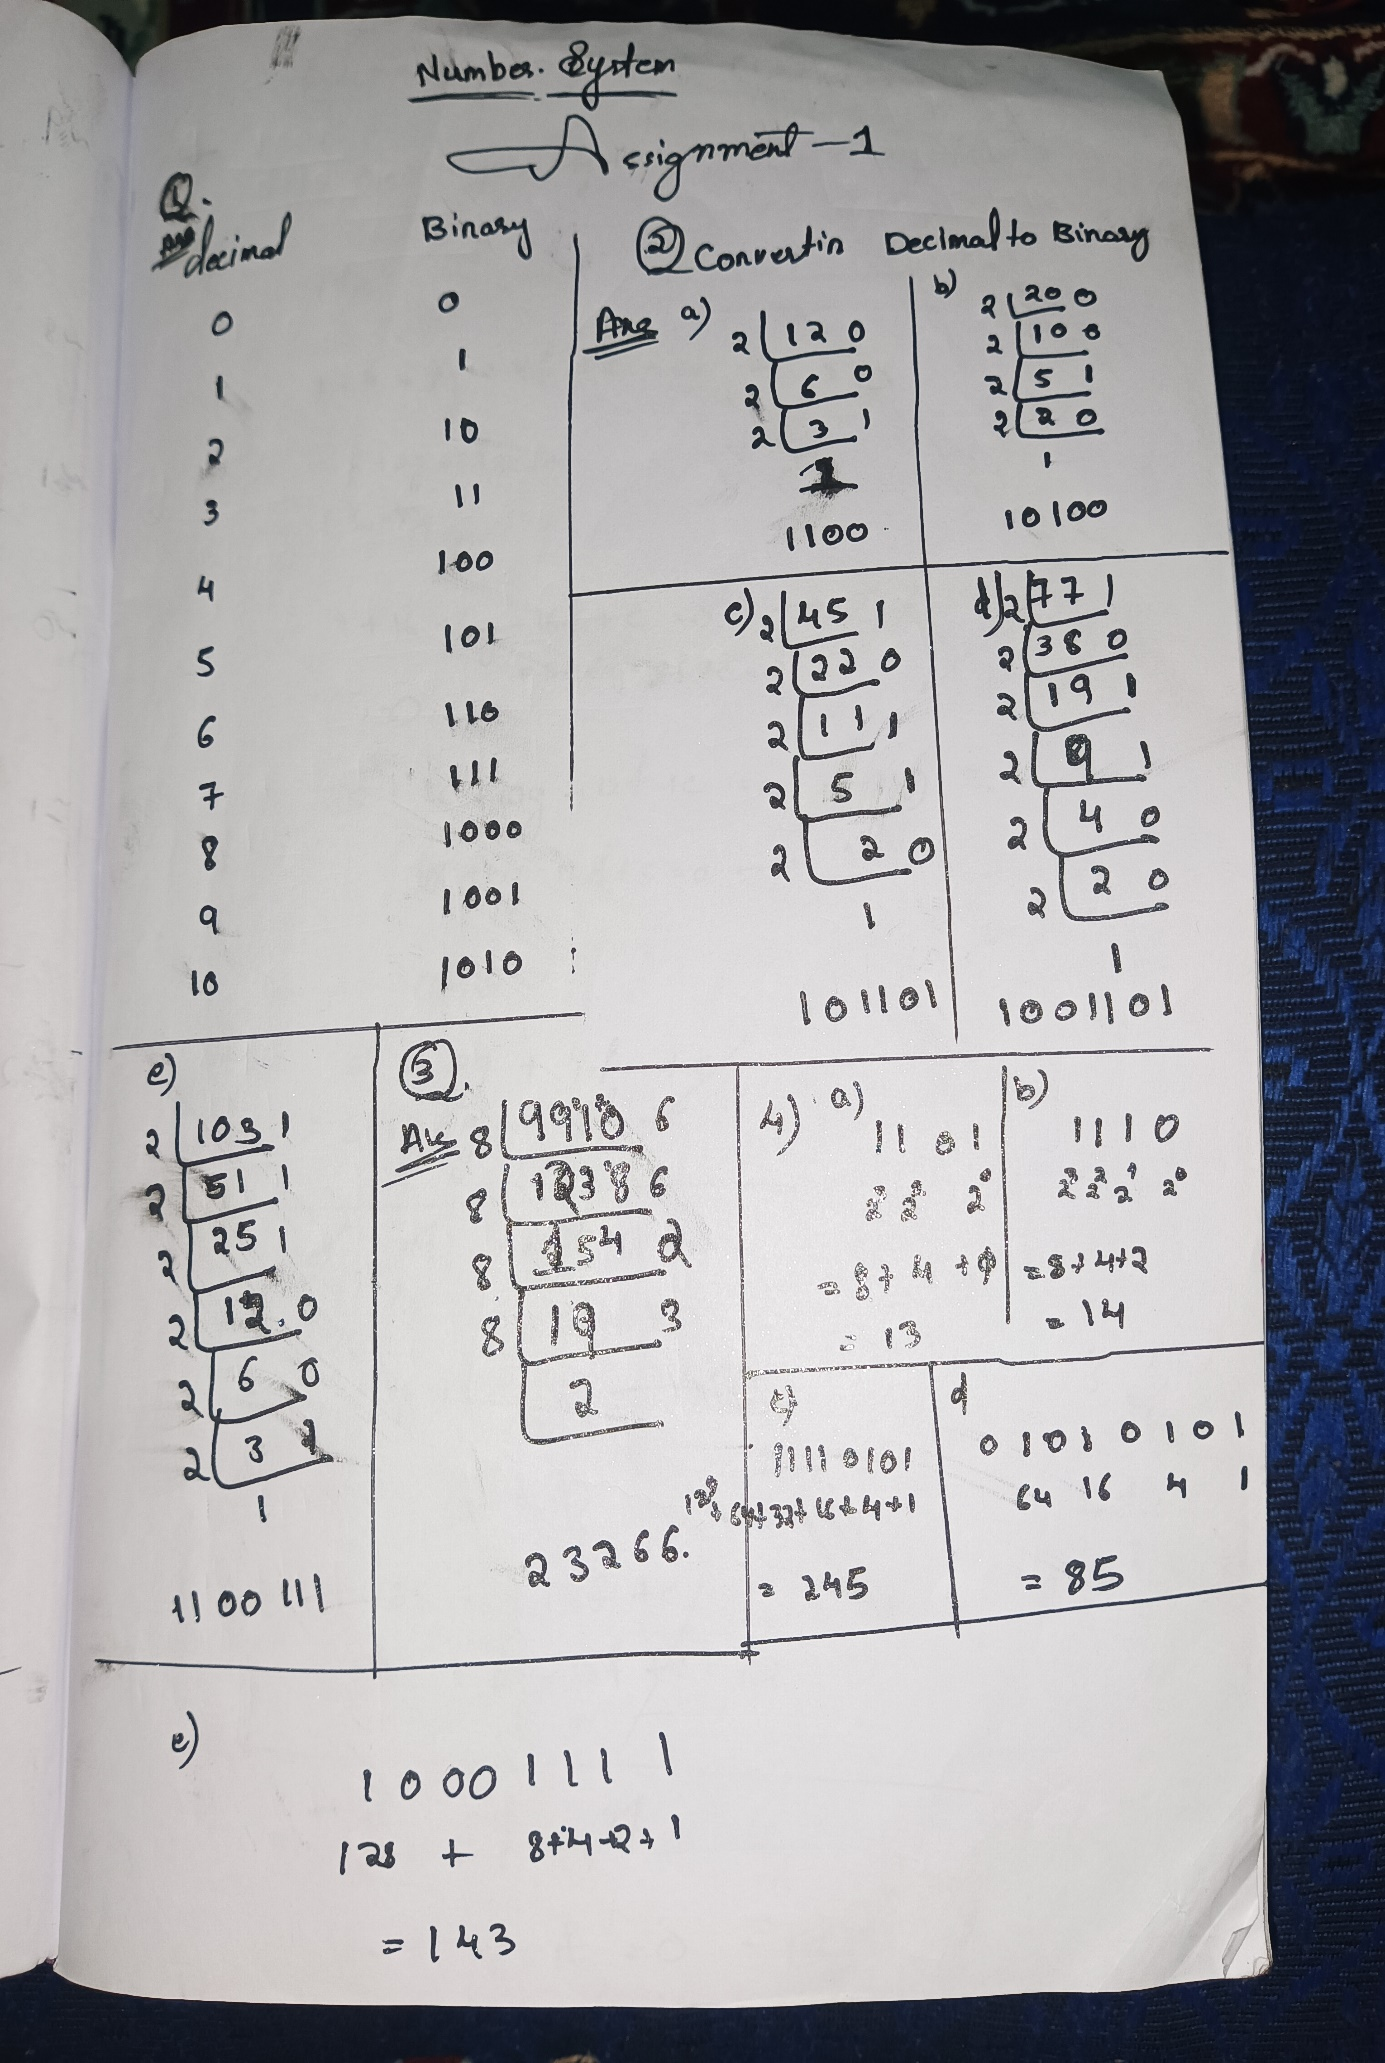 Number System
Assignment-1
Q.
Ans
decimal Binary
0 0
1 1
2 10
3 11
4 100
5 101
6 110
7 111
8 1000
9 1001
10 1010
2 Convertin Decimal to Binary
Ans a)
2 12 0
2 6 0
2 3 1
1
1100
b)
2 20 0
2 10 0
2 5 1
2 2 0
1
10100
c) 2 45 1
2 22 0
2 11 1
2 5 1
2 2 0
1
101101
d) 2 77 1
2 38 0
2 19 1
2 9 1
2 4 0
2 2 0
1
1001101
e)
2 103 1
2 51 1
2 25 1
2 12 0
2 6 0
2 3 1
1
1100111
3.
Ans 8 9910 6
8 1238 6
8 154 2
8 19 3
2
23266.
4) a)
1101
2³ 2² 2⁰
= 8+4+1
= 13
b)
1110
2³ 2² 2¹ 2⁰
= 8+4+2
= 14
c)
11110101
128+64+32+16+4+1
= 245
d
01010101
64 16 4 1
= 85
e)
10001111
128 + 8+4+2+1
= 143